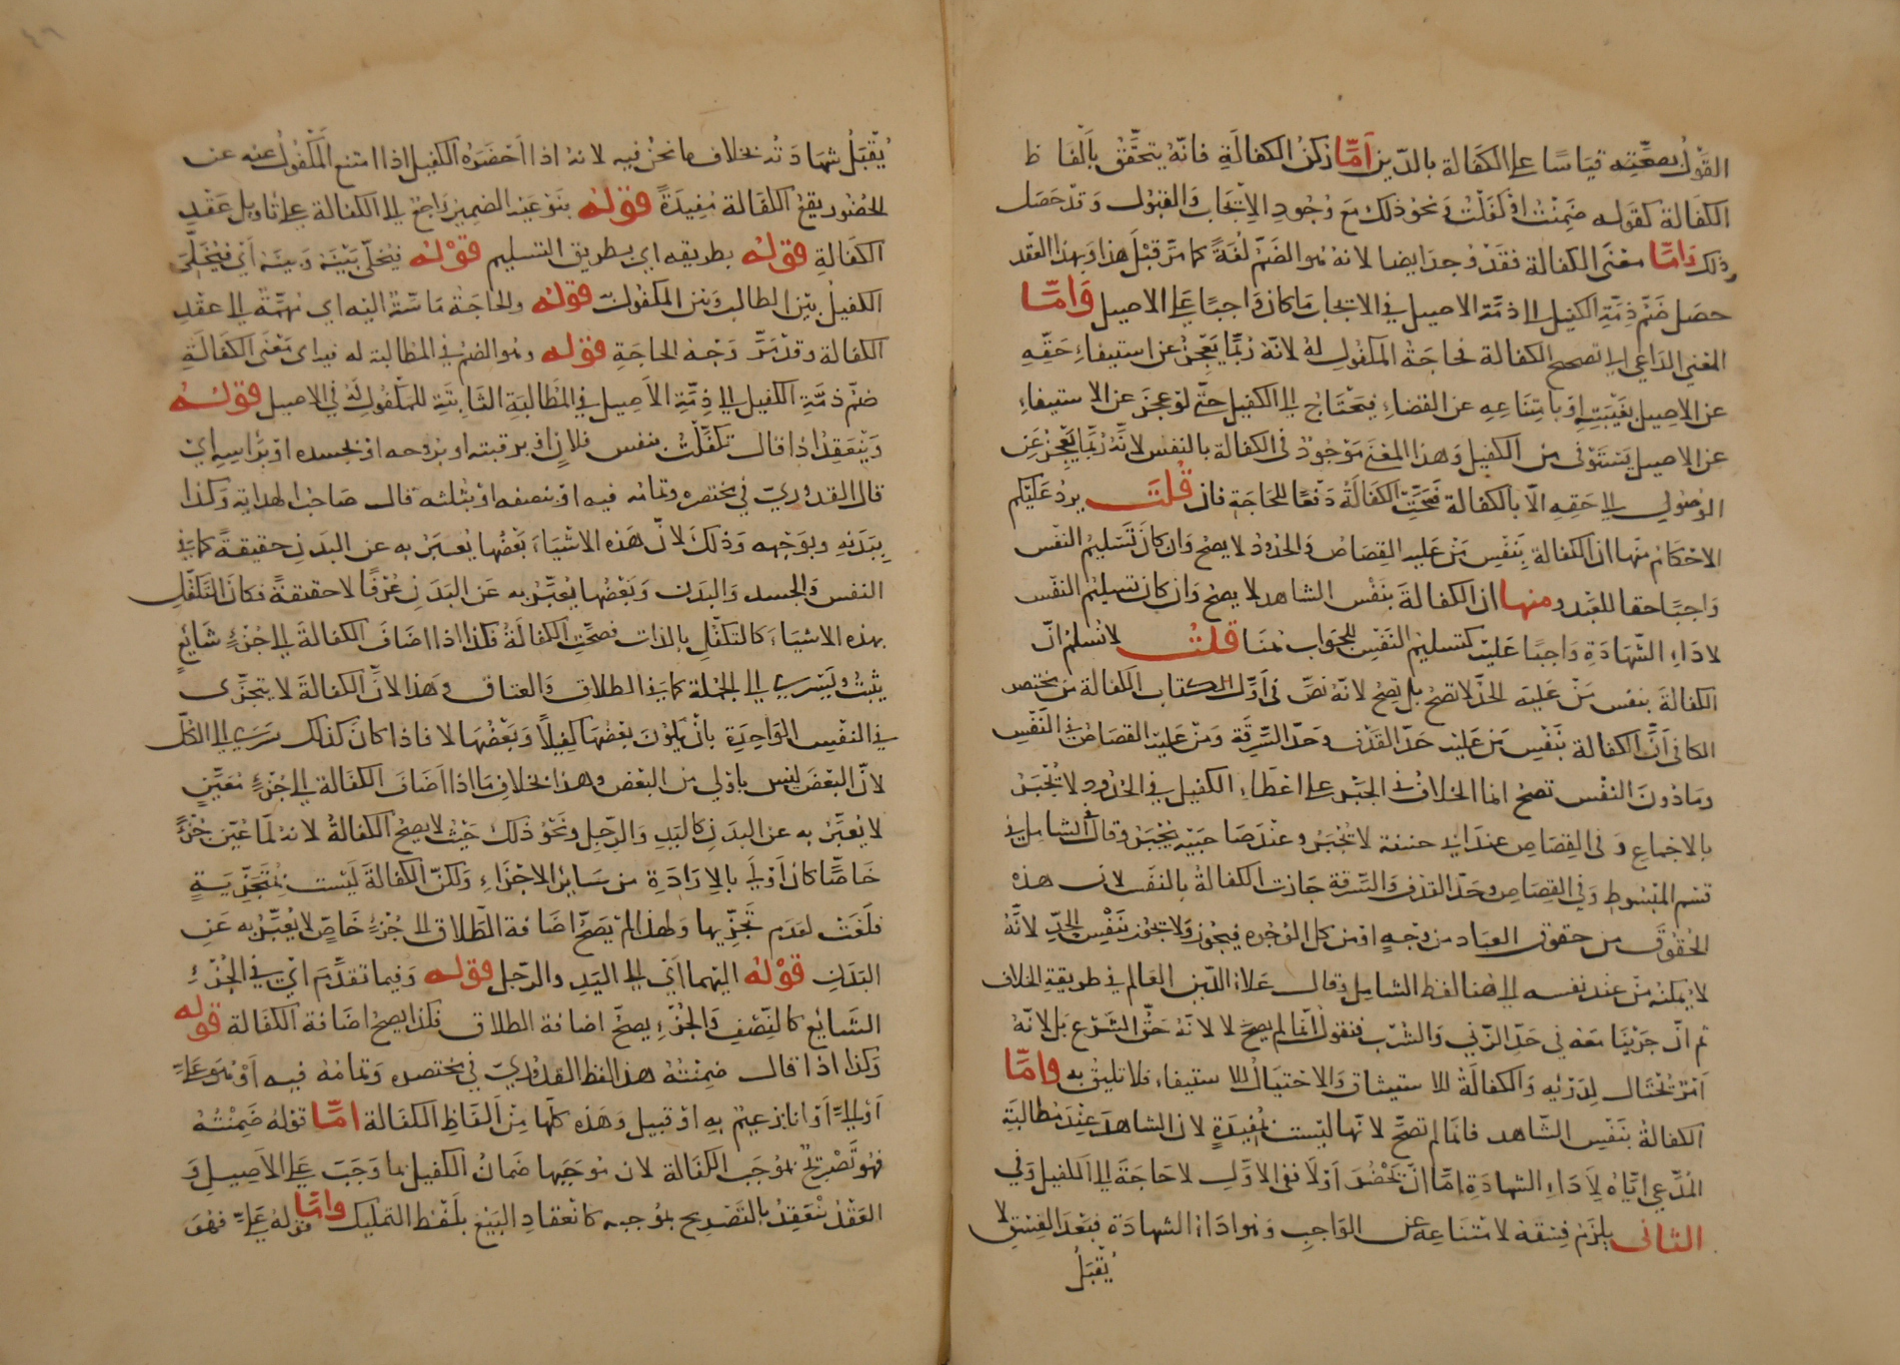 القول بصحته قياسا على الكفالة بالدين اما ركن الكفالة فانه يتحقق بالفاظ
الكفالة كقوله ضمنت او كفلت ونحو ذلك مع وجود الايجاب والقبول وقد حصل
ذلك واما معنى الكفالة فقد وجد ايضا لانه هو الضم لغة كما مر قبل هذا وبهذا العقد
حصل ضم ذمة الكفيل الى ذمة الاصيل في الايجاب ما كان واجبا على الاصيل واما
المعنى الداعي الى تصحيح الكفالة فحاجة المكفول له لانه ربما يعجز عن استيفاء حقه
عن الاصيل بغيبته او بامتناعه عن القضاء فيحتاج الى الكفيل حتى لو عجز عن الاستيفاء
عن الاصيل يستوفى من الكفيل وهذا المعنى موجود في الكفالة بالنفس لانه ربما يعجز عن
الوصول الى حقه الا بالكفالة فصحت الكفالة دفعا للحاجة فان قلت يرد عليكم
الاحكام منها ان الكفالة بنفس من عليه القصاص والحدود لا يصح وان كان تسليم النفس
واجبا حقا للعبد ومنها ان الكفالة بنفس الشاهد لا يصح وان كان تسليم النفس
لاداء الشهادة واجبا عليه كتسليم النفس للجواب هنا قلت لا نسلم ان
الكفالة بنفس من عليه الحد لا تصح بل تصح لانه نص في اول كتاب الكفالة من مختصر
الكافي ان الكفالة بنفس من عليه حد القذف وحد السرقة ومن عليه القصاص في النفس
وما دون النفس تصح انما الخلاف في الجبر على اعطاء الكفيل في الحدود لا يجبر
بالاجماع وفي القصاص عند ابي حنيفة لا يجبر وعند صاحبيه يجبر وقال في الشامل في
قسم المبسوط وفي القصاص وحد القذف والسرقة جازت الكفالة بالنفس لان هذه
الحقوق من حقوق العباد من وجه او من كل الوجوه فيجوز ولا يجوز بنفس الحد لانه
لا يمكنه من عند نفسه الى هنا لفظ الشامل وقال علاء الدين العالم في طريقة الخلاف
ثم ان جرينا معه في حد الزنى والشرب فنقول انما لم يصح لا لانه حق الشرع بل لانه
امر يحتال لدرئه والكفالة للاستيثاق والاحتيال للاستيفاء فلا تليق به واما
الكفالة بنفس الشاهد فانما لم تصح لانها ليست بمفيدة لان الشاهد عند مطالبة
المدعي اياه لاداء الشهادة اما ان يحضر او لا ففي الاول لا حاجة الى الكفيل وفي
الثاني يلزم فسقه لامتناعه عن الواجب وهو اداء الشهادة فبعد الفسق لا
يقبل
يقبل شهادته بخلاف ما نحن فيه لانه اذا احضره الكفيل اذا امتنع المكفول عنه عن
الحضور يقع الكفالة مفيدة قوله بنوعيه الضمير راجع الى الكفالة على تاويل عقد
الكفالة قوله بطريقه اي بطريق التسليم قوله فيخلي بينه وبينه اي فيخلي
الكفيل بين الطالب وبين المكفول به قوله والحاجة ماسة اليه اي مهمة الى عقد
الكفالة وقد مر وجه الحاجة قوله وهو الضم في المطالبة له فيه اي معنى الكفالة
ضم ذمة الكفيل الى ذمة الاصيل في المطالبة الثابتة للمكفول له في الاصيل قوله
وينعقد اذا قال تكفلت بنفس فلان او برقبته او بروحه او بجسده او براسه اي
قال القدوري في مختصره وتمامه فيه او بنصفه او بثلثه قال صاحب الهداية وكذا
ببدنه وبوجهه وذلك لان هذه الاشياء بعضها يعبر به عن البدن حقيقة كما في
النفس والجسد والبدن وبعضها يعبر به عن البدن عرفا لا حقيقة فكان التكفل
بهذه الاشياء كالتكفل بالذات فصحت الكفالة فكذا اذا اضاف الكفالة الى جزء شايع
يثبت ويسري الى الجملة كما في الطلاق والعتاق وهذا لان الكفالة لا يتجزى
في النفس الواحدة بان يكون بعضها كفيلا وبعضها لا فاذا كان كذلك سرى الى الكل
لان البعض ليس باولى من البعض وهذا بخلاف ما اذا اضاف الكفالة الى جزء معين
لا يعبر به عن البدن كاليد والرجل ونحو ذلك حيث لا يصح الكفالة لانه لما عين جزءا
خاصا كان اولى بالارادة من سائر الاجزاء ولكن الكفالة ليست بمتجزية
فلغت لعدم تجزيها ولهذا لم يصح اضافة الطلاق الى جزء خاص لا يعبر به عن
البدن قوله اليهما اي الى اليد والرجل قوله وفيما تقدم اي في الجزء
الشايع كالنصف والجزء يصح اضافة الطلاق فكذا يصح اضافة الكفالة قوله
وكذا اذا قال ضمنته هذا لفظ القدوري في مختصره وتمامه فيه او هو علي
او الي او انا زعيم به او قبيل وهذه كلها من الفاظ الكفالة اما قوله ضمنته
فهو تصريح بموجب الكفالة لان موجبها ضمان الكفيل بما وجب على الاصيل و
العقد ينعقد بالتصريح بموجبه كانعقاد البيع بلفظ التمليك واما قوله علي فهو